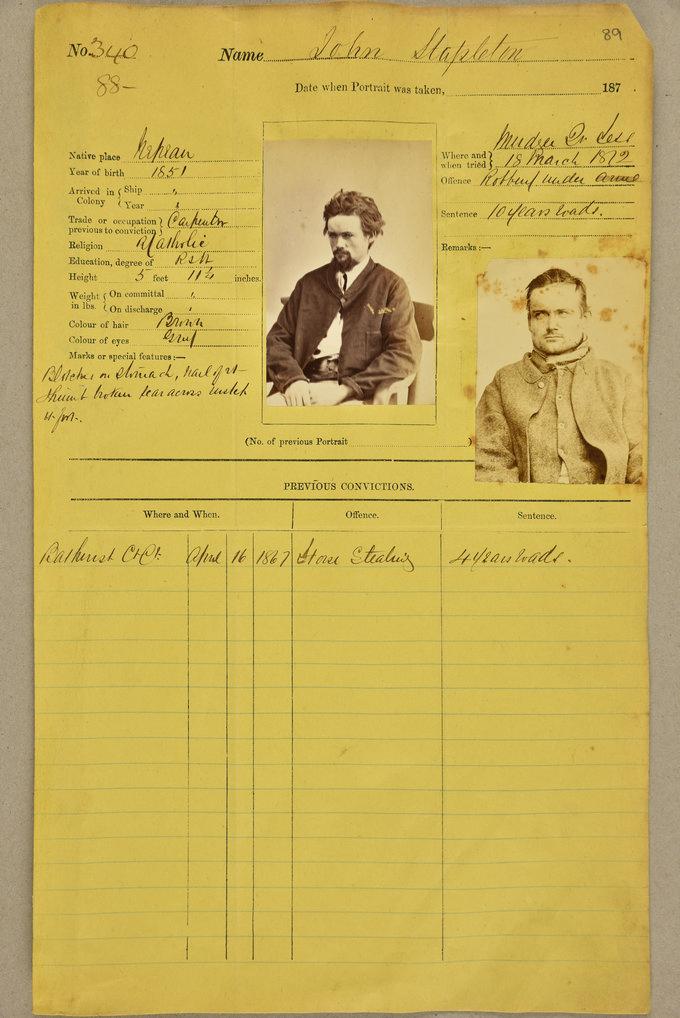 89
No. 340 Name John Stapleton
88-
Date when Portrait was taken, 187
Native place Nepean
Year of birth 1851
Arrived in Colony { Ship "
Year "
Trade or occupation previous to conviction } Carpenter
Religion R Catholic
Education, degree of R & W
Height 5 feet 11½ inches.
Weight in lbs. { On committal "
On discharge "
Colour of hair Brown
Colour of eyes Grey
Marks or special features:—
Blotches on stomach, nail of rt
thumb broken scar across instep
Where and when tried } Mudgee Qr Sess
18 March 1872
Offence Robbery under arms
Sentence 10 years roads.
Remarks:—
(No. of previous Portrait )
PREVIOUS CONVICTIONS.
Where and When. Offence. Sentence.
Bathurst C Ct. April 16 1867 Horse Stealing 4 years roads.